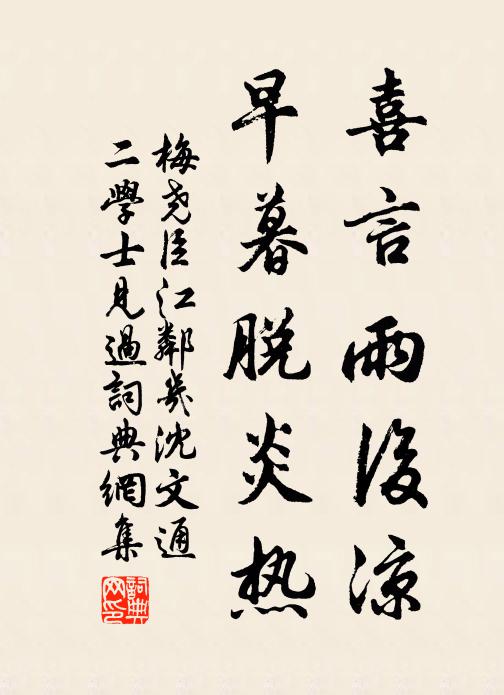 喜言雨後涼
早暮脱炎热
梅尧臣江鄰幾沈文通
二學士見過詞典網集
詞典網印